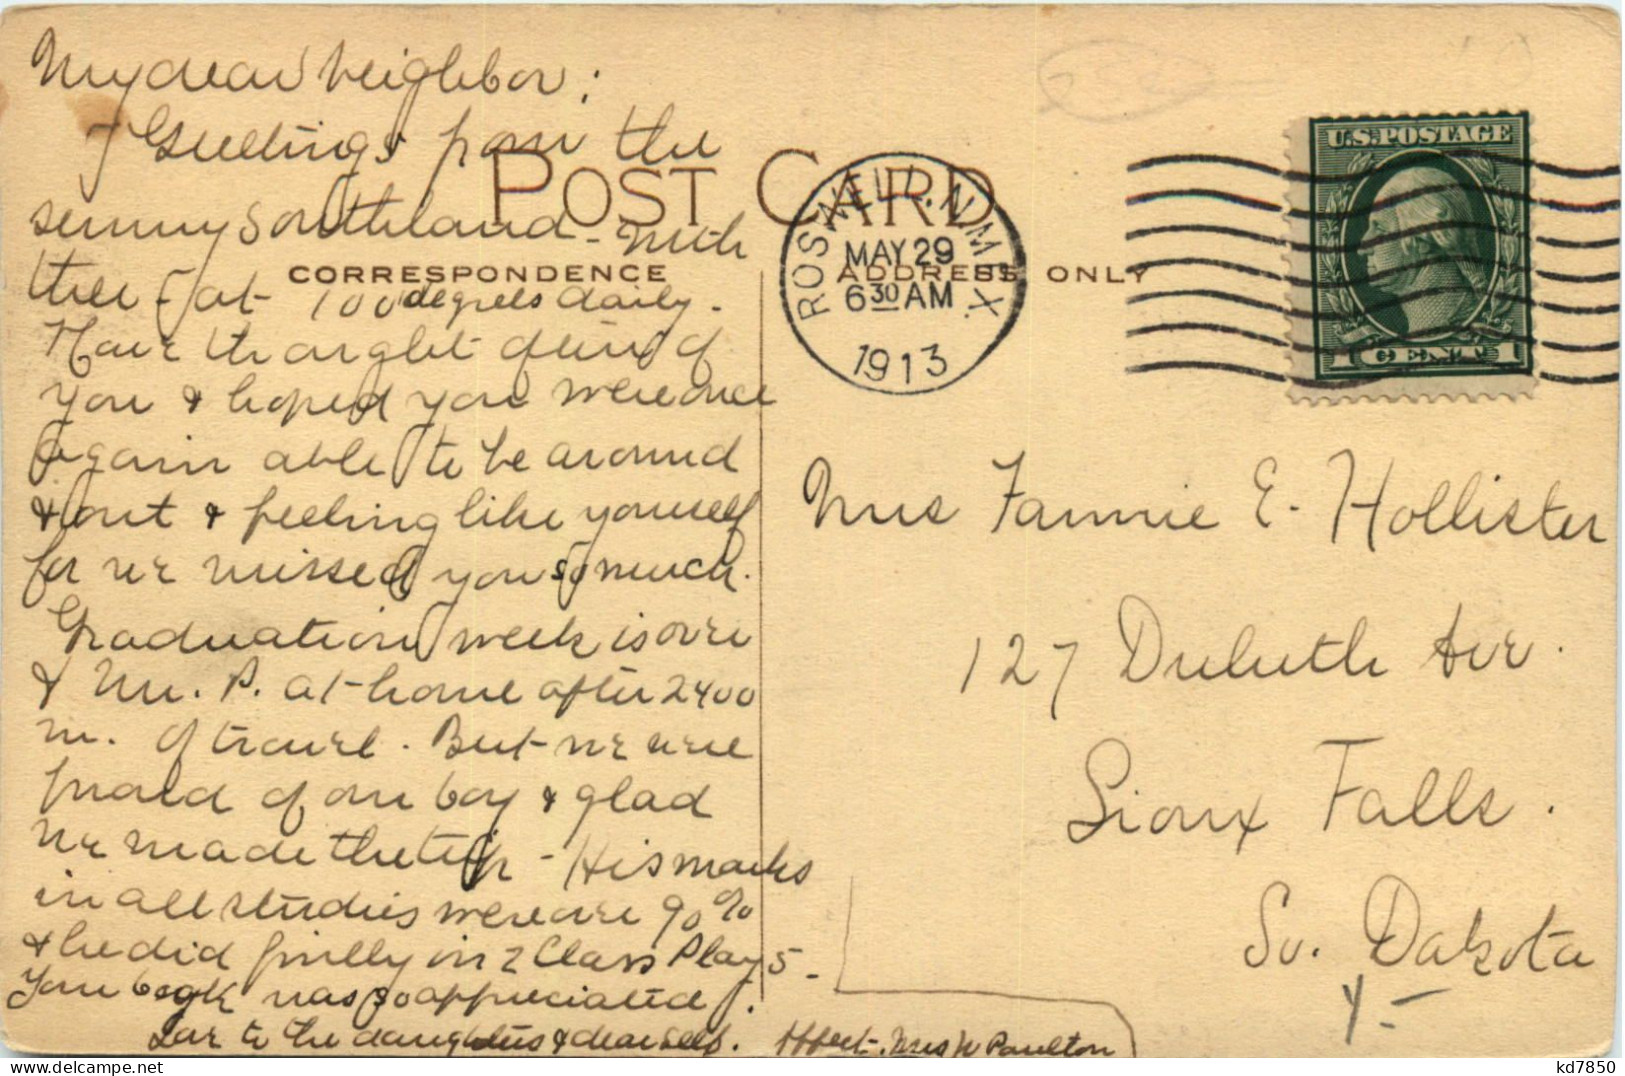 My dear Neighbor:
Greetings from the
sunny Southland - with
ther. at 100 degrees daily.
Have thought often of
you & hoped you were once
again able to be around
& out & feeling like yourself
for we missed you so much.
Graduation week is over
& Mr. P. at home after 2400
m. of travel. But we were
proud of our boy & glad
we made the trip - His marks
in all studies were over 90%
& he did finely in 2 Class Plays -
Your book was so appreciated.
Lov to the daughters & dear self. Affect. Mrs W Poulton
POST CARD
CORRESPONDENCE
ADDRESS ONLY
ROSWELL. N. MEX.
MAY 29
6 30 AM
1913
U.S. POSTAGE
1 CENT 1
Mrs Fannie E. Hollister
127 Duluth Ave.
Sioux Falls.
So. Dakota
kd7850